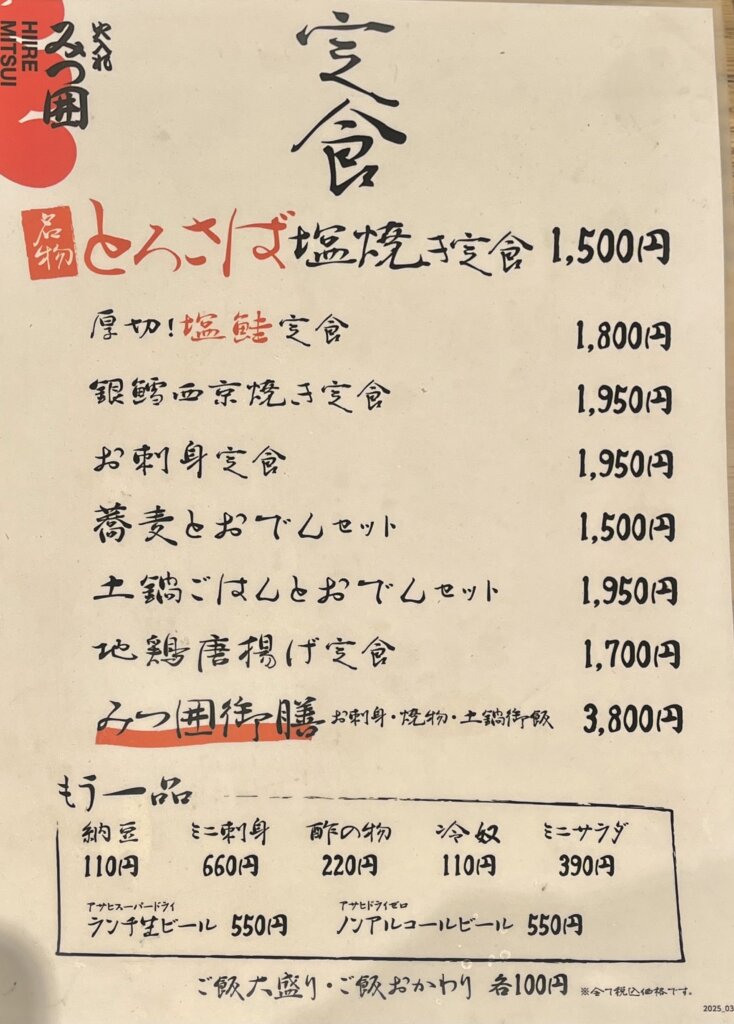 火入れ
みつ囲
HIIRE
MITSUI
定食
名物 とろさば塩焼き定食 1,500円
厚切!塩鮭定食 1,800円
銀鱈西京焼き定食 1,950円
お刺身定食 1,950円
蕎麦とおでんセット 1,500円
土鍋ごはんとおでんセット 1,950円
地鶏唐揚げ定食 1,700円
みつ囲御膳 お刺身・焼物・土鍋御飯 3,800円
もう一品
納豆 ミニ刺身 酢の物 冷奴 ミニサラダ
110円 660円 220円 110円 390円
アサヒスーパードライ アサヒドライゼロ
ランチ生ビール 550円 ノンアルコールビール 550円
ご飯大盛り・ご飯おかわり 各100円 ※全て税込価格です。
2025_03